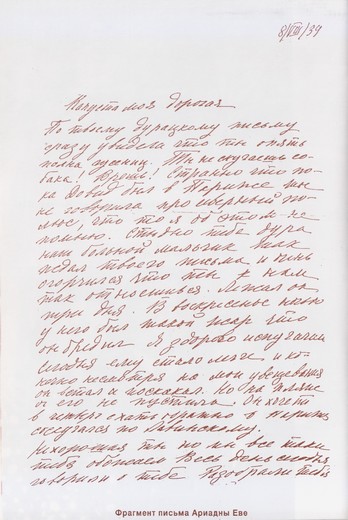 8/VIII/39
Капуста моя дорогая
По твоему дурацкому письму
сразу увидела что ты опять
полна гусениц. Ты не скучаешь со-
бака! Врёшь! Странно что по-
ка Довид был в Париже ты
не говорила про шерный по-
люс, что то я об этом не
помню. Стыдно тебе дура
наш больной мальчик так
ждал твоего письма и очень
огорчился что ты к нам
так относишься. Лежал он
три дня. В воскресенье ночью
у него был такой жар что
он бредил. Я здорово испугалась
сегодня ему стало легче и ко-
нечно несмотря на мои убеждения
он встал и поскакал. Но на пляж
я его не пустила. Он хочет
в четверг ехать обратно в Париж
соскучился по
Нехорошая ты но мы все таки
тебя обожаем Весь день сегодня
говорили о тебе Разобрали тебя
Фрагмент письма Ариадны Еве